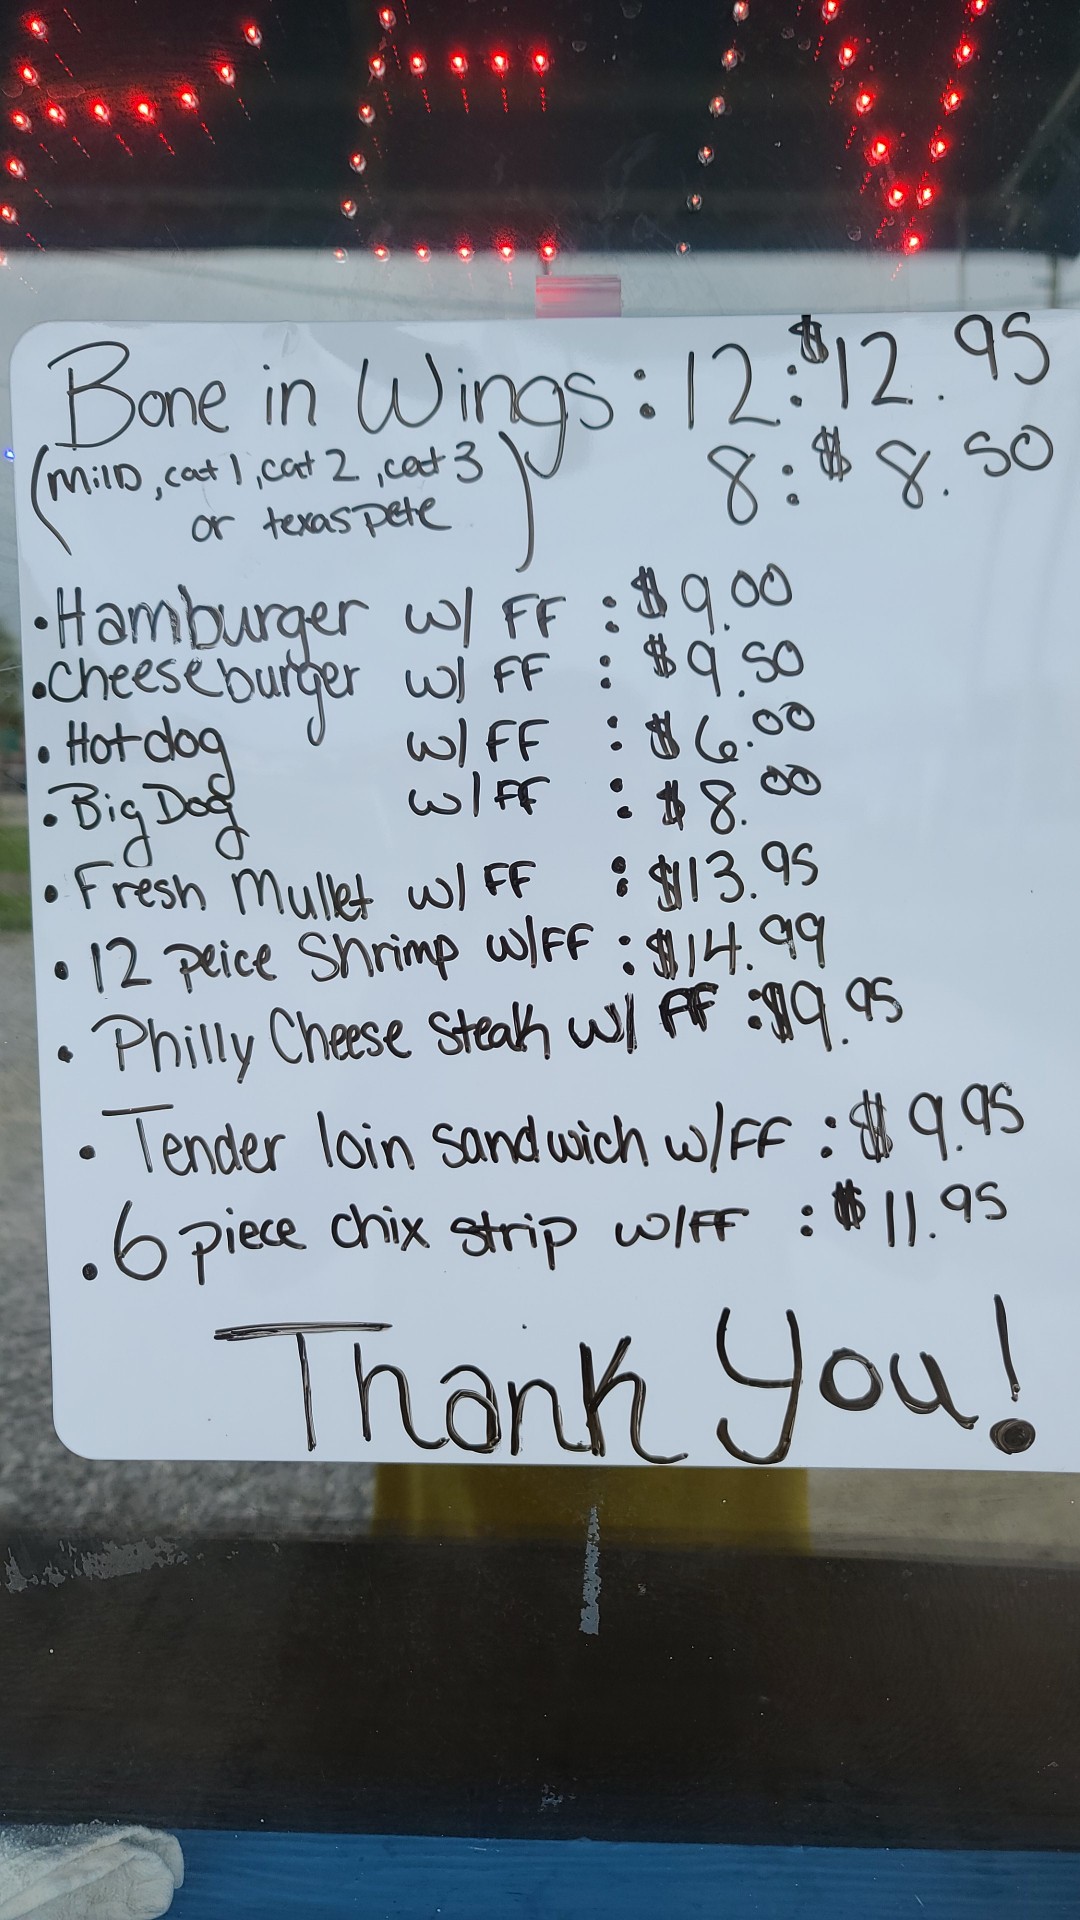 Bone in Wings: 12: $12.95
(Mild, cat 1, cat 2, cat 3 8: $8.50
or texas pete)
• Hamburger w/ FF : $9.00
• cheeseburger w/ FF : $9.50
• Hotdog w/ FF : $6.00
• Big Dog w/ FF : $8.00
• Fresh Mullet w/ FF : $13.95
• 12 peice Shrimp w/FF : $14.99
• Philly Cheese Steak w/ FF : $9.95
• Tender loin sandwich w/FF : $9.95
• 6 piece chix strip w/FF : $11.95
Thank You!